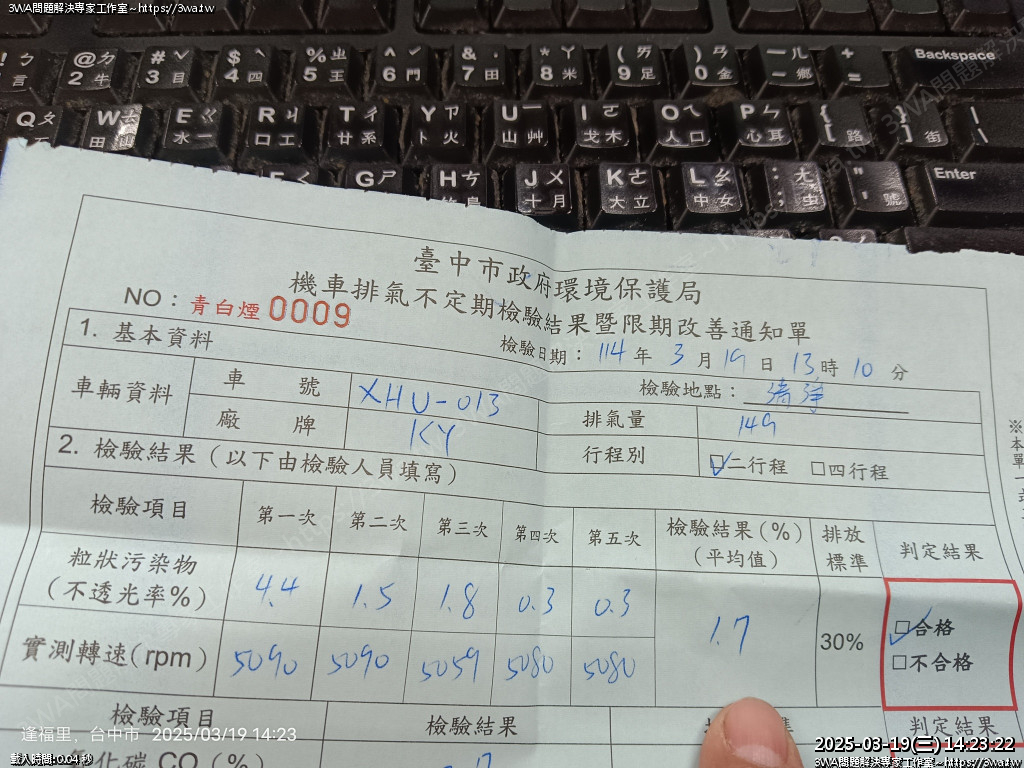 3WA問題解決專家工作室~https://3wa.tw
@ㄉ # ˇ $ ˋ % ㄓ ^ ˊ & ˙ * ㄚ ( ㄞ ) ㄢ — ㄦ + Backspace
言 2 生 3 目 4 四 5 王 6 門 7 田 8 米 9 足 0 金 - 鄉 =
Q ㄆ W ㄊ E ㄍ R ㄐ T ㄔ Y ㄗ U ㄧ I ㄛ O ㄟ P ㄣ { } |
手 田 水 口 廿 卜 山 戈 人 心 [ ] 街 \
G ㄕ H ㄘ J ㄨ K ㄜ L ㄠ : ㄤ " Enter
十 月 大 立 中 女 ; 虫 ' 號
臺中市政府環境保護局
機車排氣不定期檢驗結果暨限期改善通知單
NO：青白煙 0009
檢驗日期：114 年 3 月 19 日 13 時 10 分
1. 基本資料
檢驗地點：
車輛資料 車號 XHU-013 排氣量 149
廠牌 KY 行程別 ☑二行程 □四行程
2. 檢驗結果（以下由檢驗人員填寫）
檢驗項目 第一次 第二次 第三次 第四次 第五次 檢驗結果(%)(平均值) 排放標準 判定結果
粒狀污染物(不透光率%) 4.4 1.5 1.8 0.3 0.3 1.7 30% ☑合格
實測轉速(rpm) 5090 5090 5059 5080 5080 □不合格
檢驗項目 檢驗結果 判定結果
化碳 CO (%)
※
本
單
逢福里, 台中市 2025/03/19 14:23
載入時間:0.04 秒
2025-03-19(三) 14:23:22
3WA問題解決專家工作室~https://3wa.tw